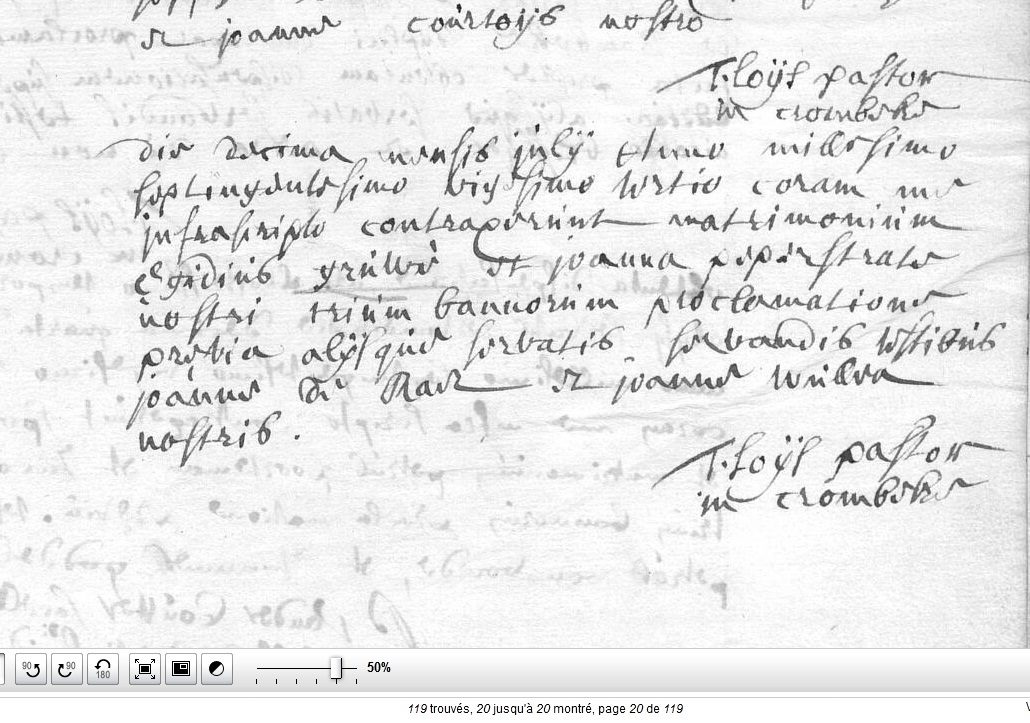 et joanne courtoÿs nostro
T. loÿs pastor
in crombeke
die decima mensis julÿ Anno millesimo
septingentesimo vigesimo tertio coram me
infrascripto contraxerunt matrimonium
Egidius gruwe et joanna peperstrate
nostri trium bannorum proclamatione
prævia alÿsque servatis servandis testibus
joanne de Rae et joanne wulles
nostris.
T. loÿs pastor
in crombeke
90
90
180
50%
119 trouvés, 20 jusqu'à 20 montré, page 20 de 119